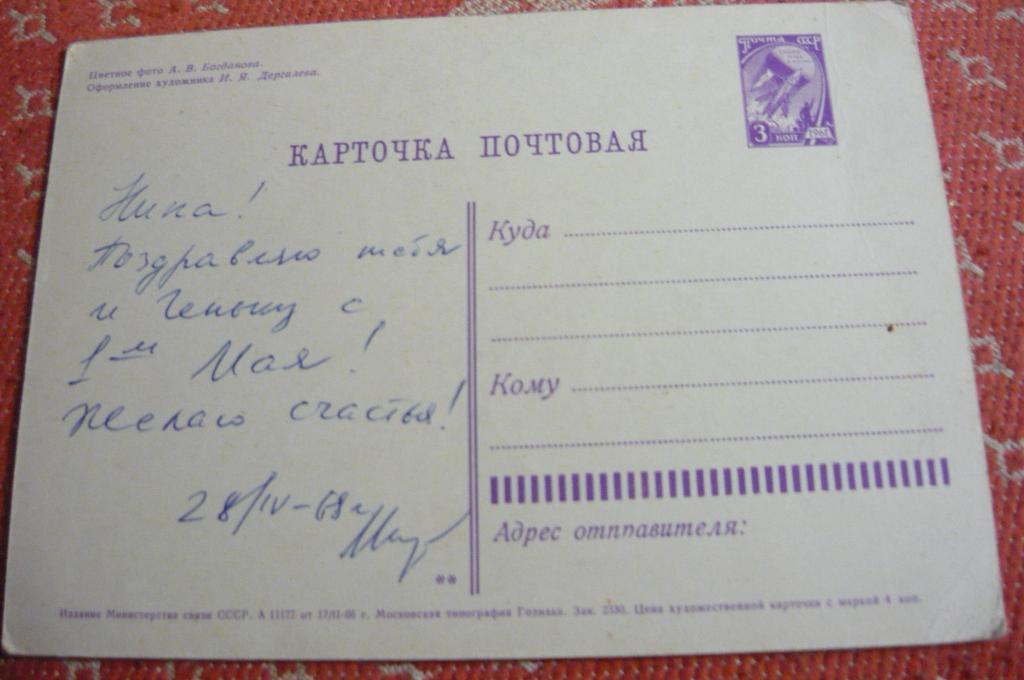 Цветное фото А. В. Богданова.
Оформление художника И. Я. Дергилева.
ПОЧТА СССР
3 КОП 1961
КАРТОЧКА ПОЧТОВАЯ
Нина!
Поздравляю тебя
и Геньку с
1ым Мая!
Желаю счастья!
28/IV-68г
Куда
Кому
Адрес отправителя:
**
Издание Министерства связи СССР. А 11177 от 17/II-66 г. Московская типография Гознака. Зак. 2330. Цена художественной карточки с маркой 4 коп.